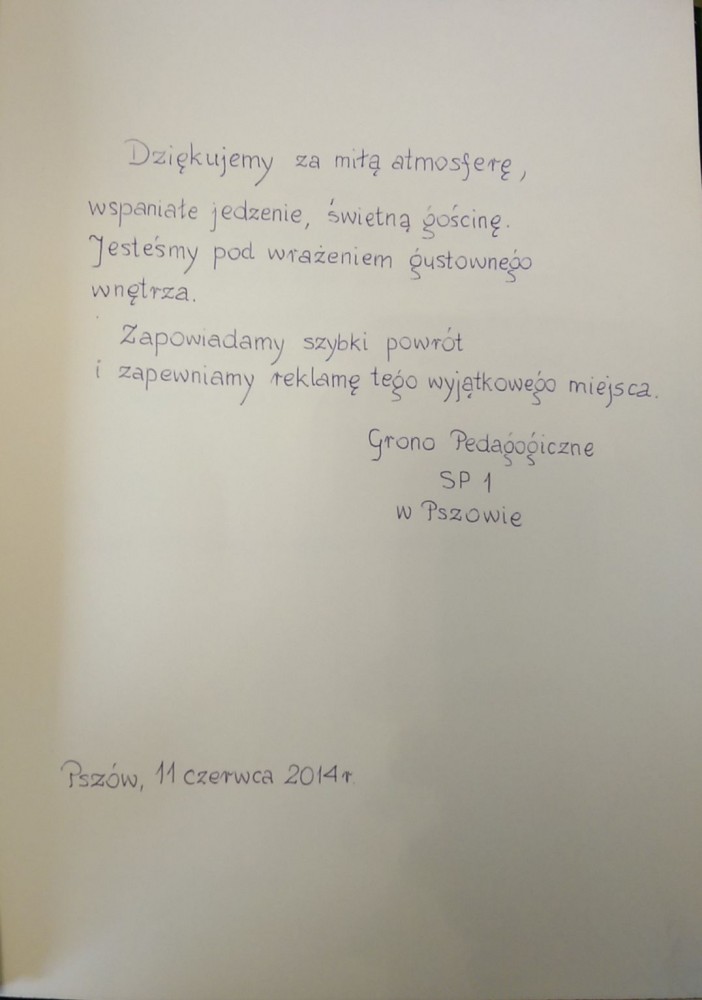 Dziękujemy za miłą atmosferę,
wspaniałe jedzenie, świetną gościnę.
Jesteśmy pod wrażeniem gustownego
wnętrza.
Zapowiadamy szybki powrót
i zapewniamy reklamę tego wyjątkowego miejsca.
Grono Pedagogiczne
SP 1
w Pszowie
Pszów, 11 czerwca 2014 r.